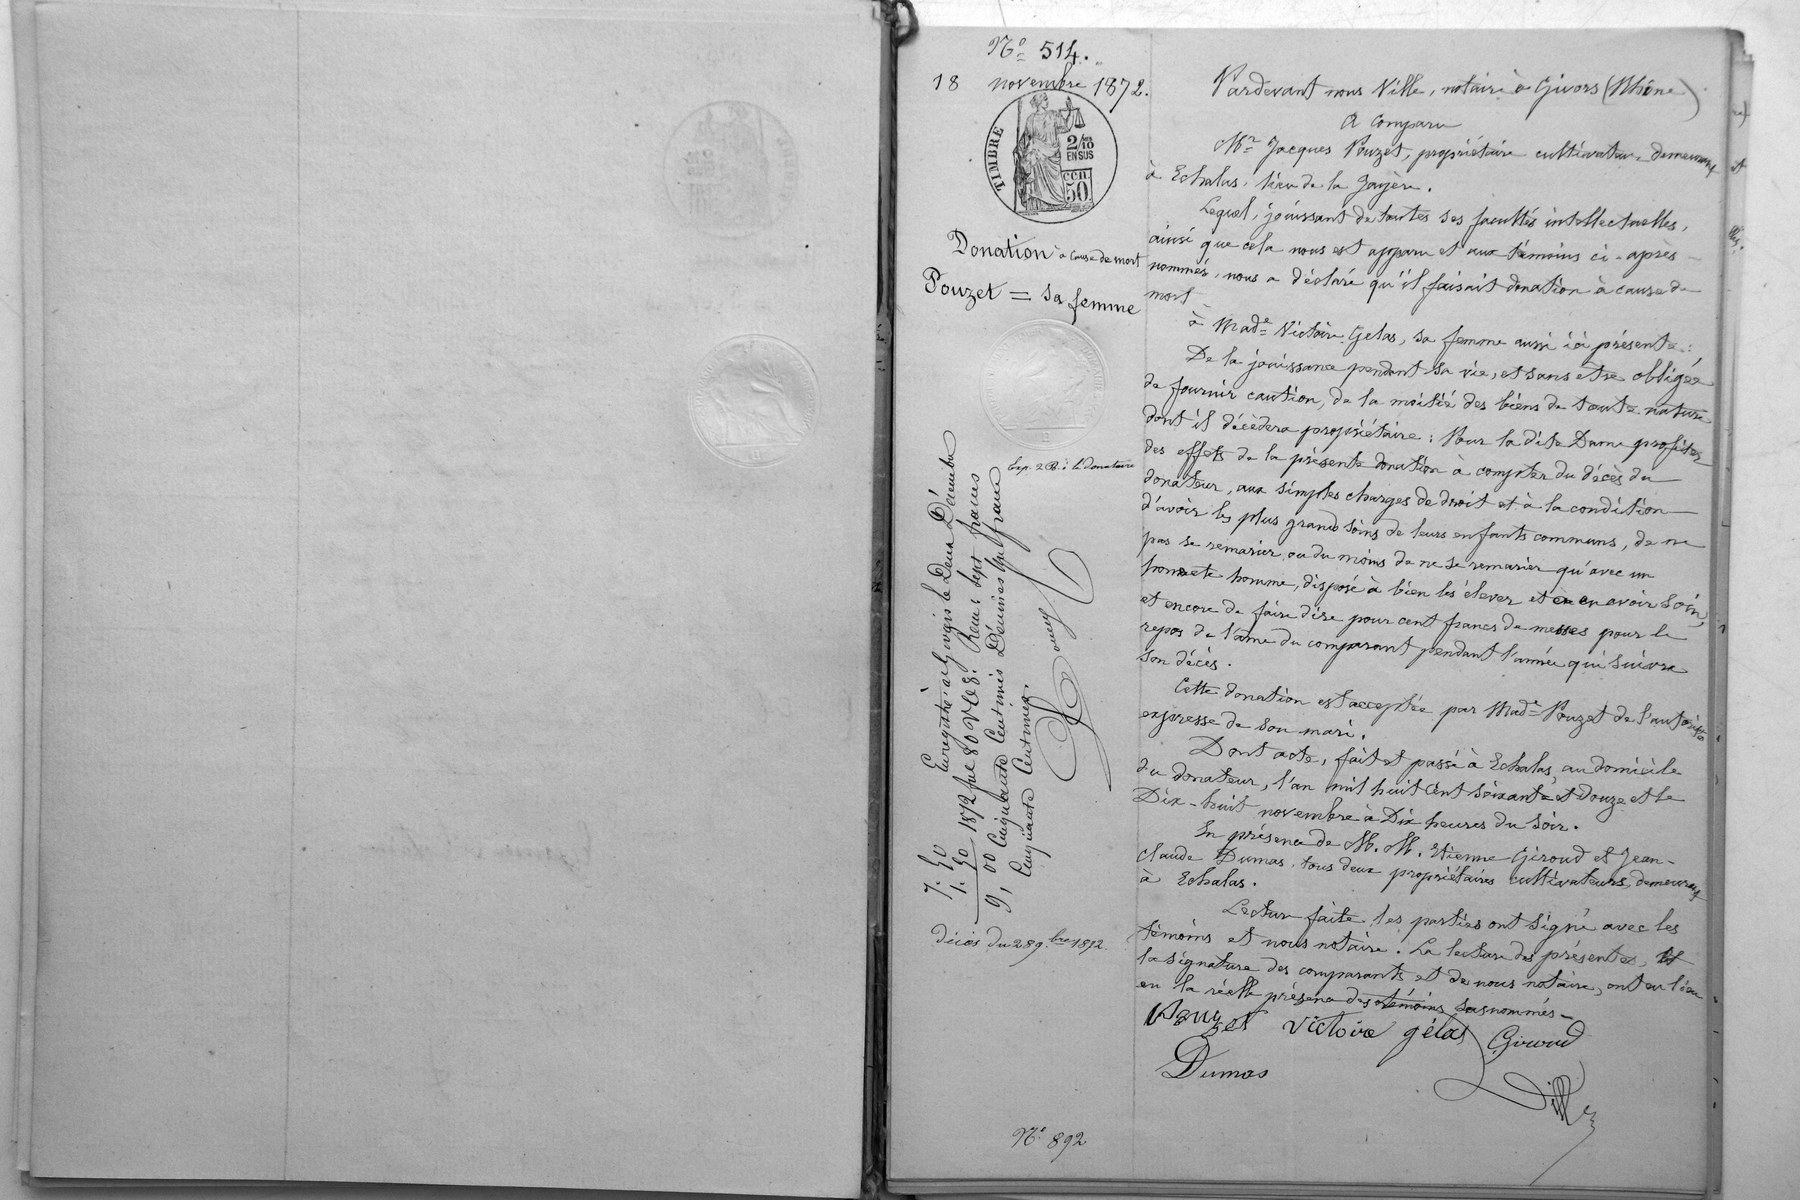 N° 514.
18 novembre 1872.
TIMBRE
2/10
EN SUS
CEN.
50
Donation à cause de mort
Pouzet = sa femme
Exp. 2 R. à la donataire
Enregistré à Givors le Deux Décembre
1872 f° 80 V° C 8. Reçu: sept francs
Cinquante Centimes Décimes Un franc
Cinquante Centimes.
7. 50
1. 50
9, 00
décès du 28 9.bre 1872.
N° 892
Pardevant nous Ville, notaire à Givors (Rhône)
A comparu
Mr Jacques Pouzet, propriétaire cultivateur, demeurant
à Echalas, lieu de la Jayère.
Lequel, jouissant de toutes ses facultés intellectuelles,
ainsi que cela nous est apparu et aux témoins ci-après
nommés, nous a déclaré qu'il faisait donation à cause de
mort
à Made Victoire Gelas, sa femme aussi ici présente:
De la jouissance pendant sa vie, et sans être obligée
de fournir caution, de la moitié des biens de toute nature
dont il décèdera propriétaire: Pour la dite Dame profiter
des effets de la présente donation à compter du décès du
donateur, aux simples charges de droit et à la condition
d'avoir les plus grands soins de leurs enfants communs, de ne
pas se remarier ou du moins de ne se remarier qu'avec un
honnete homme, disposé à bien les élever et en avoir soin,
et encore de faire dire pour cent francs de messes pour le
repos de l'âme du comparant pendant l'année qui suivra
son décès.
Cette donation est acceptée par Made Pouzet de l'autorité
expresse de son mari.
Dont acte, fait et passé à Echalas, au domicile
du donateur, l'an mil huit cent soixante et douze et le
Dix-huit novembre à Dix heures du soir.
En présence de M. M. Etienne Giroud et Jean-
claude Dumas, tous deux propriétaires cultivateurs, demeurant
à Echalas.
Lecture faite les parties ont signé avec les
témoins et nous notaire. La lecture des présentes, et
la signature des comparants et de nous notaire, ont eu lieu
en la réelle présence des témoins susnommés
Pouzet victoire gélas Giroud
Dumas
Ville